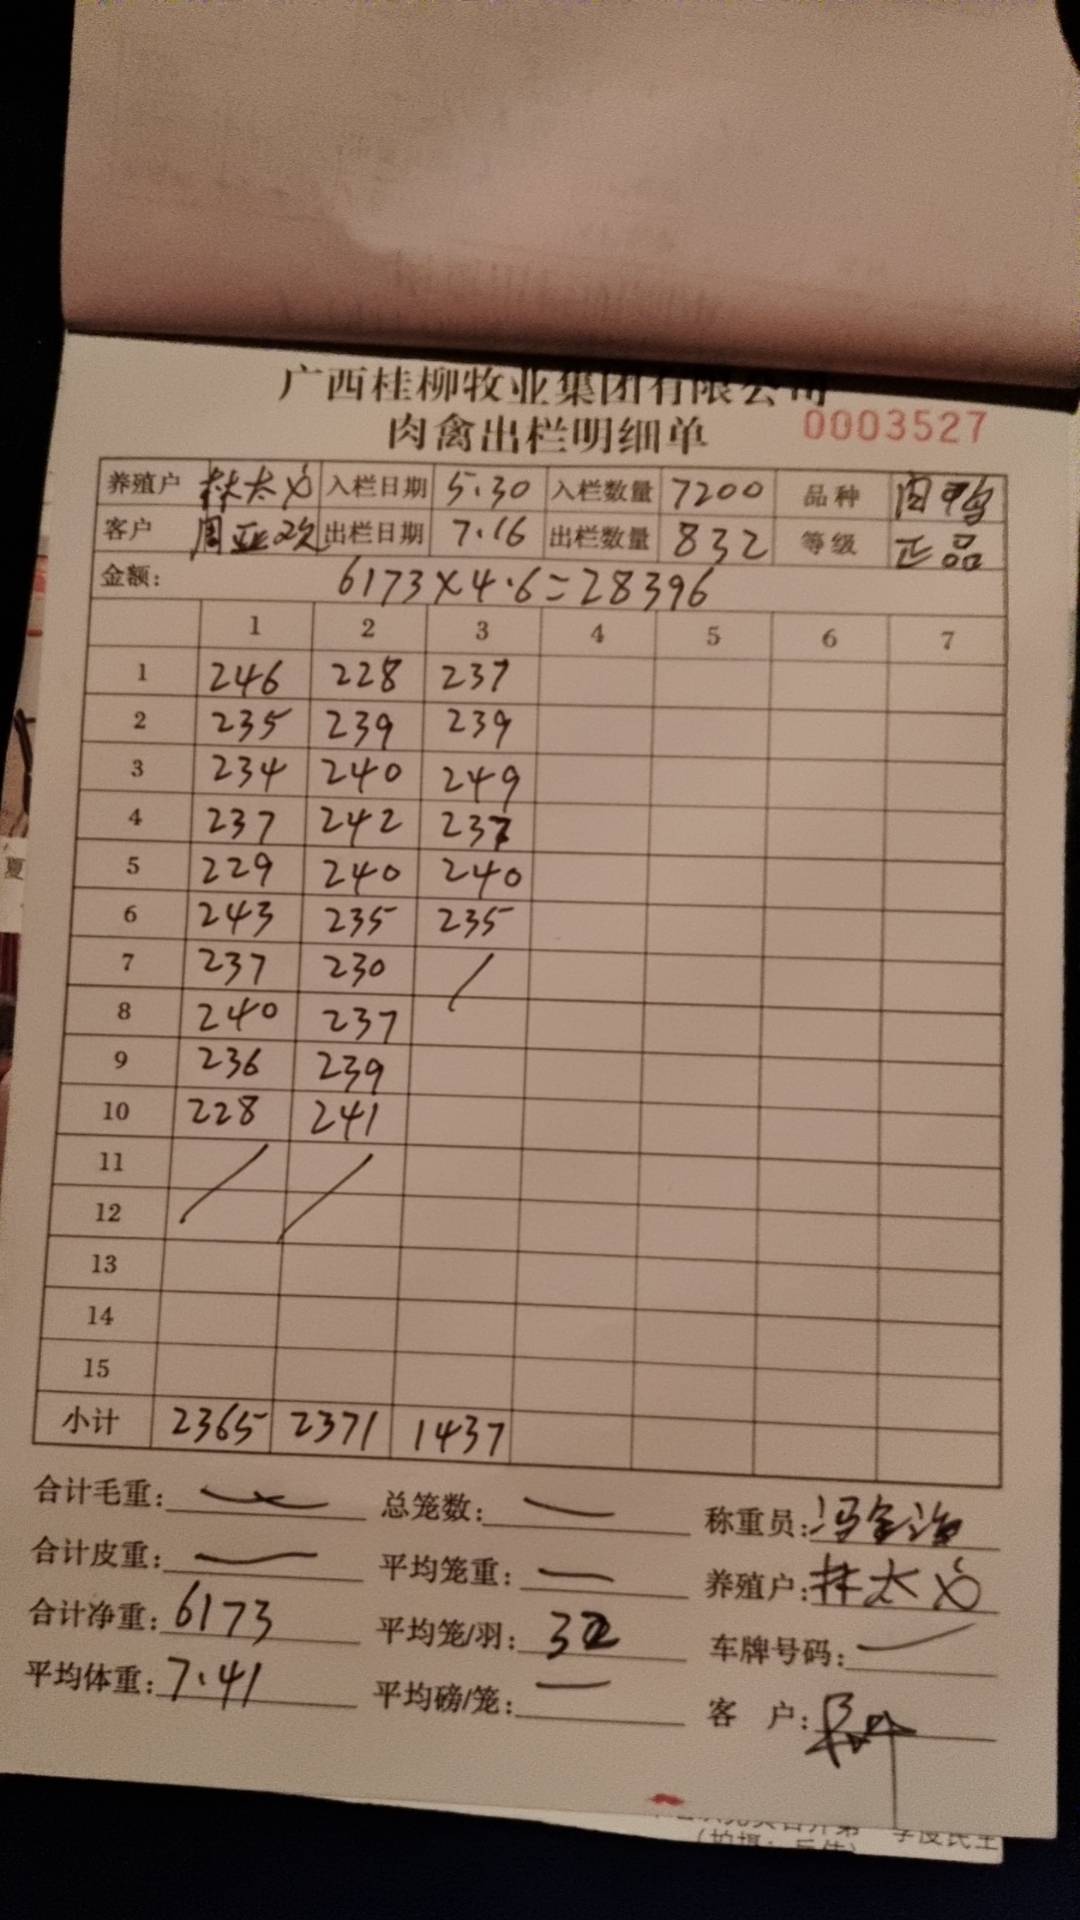 广西桂柳牧业集团有限公司
肉禽出栏明细单 0003527
养殖户 林太义 入栏日期 5.30 入栏数量 7200 品种 肉鸭
客户 周亚欢 出栏日期 7.16 出栏数量 832 等级 正品
金额: 6173×4.6=28396
1 2 3 4 5 6 7
1 246 228 237
2 235 239 239
3 234 240 249
4 237 242 237
5 229 240 240
6 243 235 235
7 237 230 /
8 240 237
9 236 239
10 228 241
11 / /
12
13
14
15
小计 2365 2371 1437
合计毛重: 总笼数: 称重员:
合计皮重: 平均笼重: 养殖户: 林太义
合计净重: 6173 平均笼/羽: 32 车牌号码:
平均体重: 7.41 平均磅/笼: 客 户: